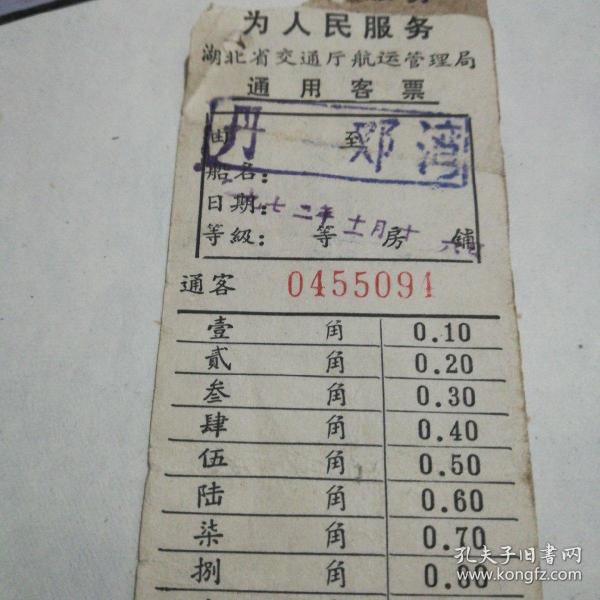 为人民服务
湖北省交通厅航运管理局
通用客票
由 丹 到 郑湾
船名：
日期：一九七二年十一月十六日
等级： 等 房 铺
通客 0455094
壹 角 0.10
贰 角 0.20
叁 角 0.30
肆 角 0.40
伍 角 0.50
陆 角 0.60
柒 角 0.70
捌 角 0.80
孔夫子旧书网
www.kongfz.com